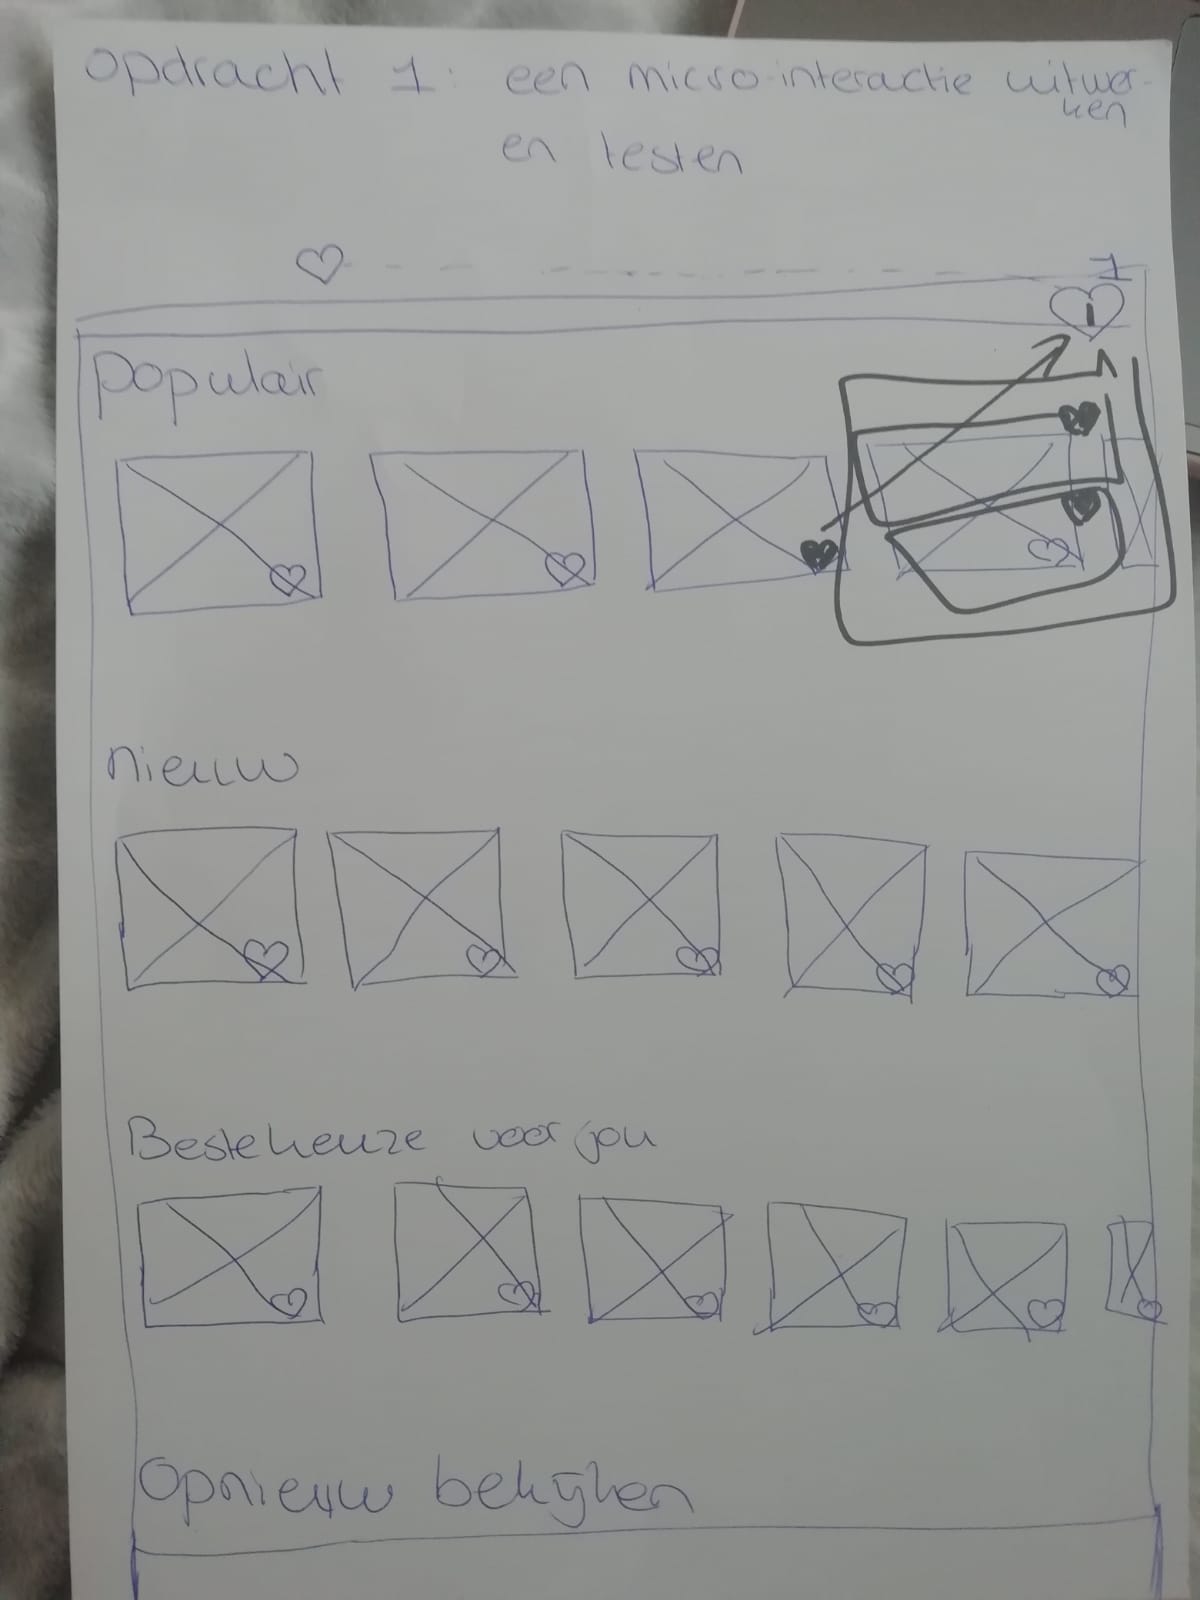 opdracht 1: een micro-interactie uitwer-
ken
en testen
1
1
Populair
nieuw
Beste keuze voor jou
Opnieuw bekijken